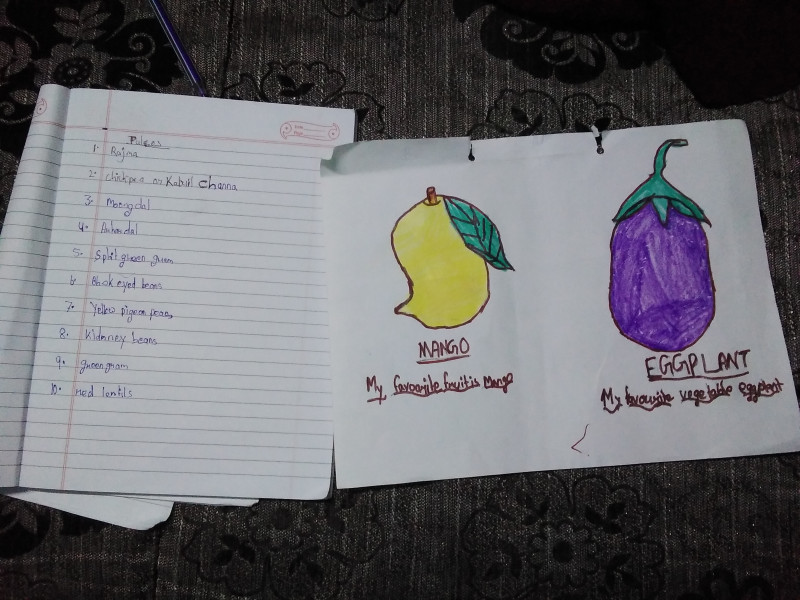 Pulses
1. Rajma
2. chickpea or Kabuli channa
3. Moong dal
4. dal
5. Split green gram
6. Black eyed beans
7. Yellow pigeon peas
8. Kidnney beans
9. green gram
10. Red lentils
MANGO
My favourite fruit is Mango
EGGPLANT
My favourite vegetable eggplant